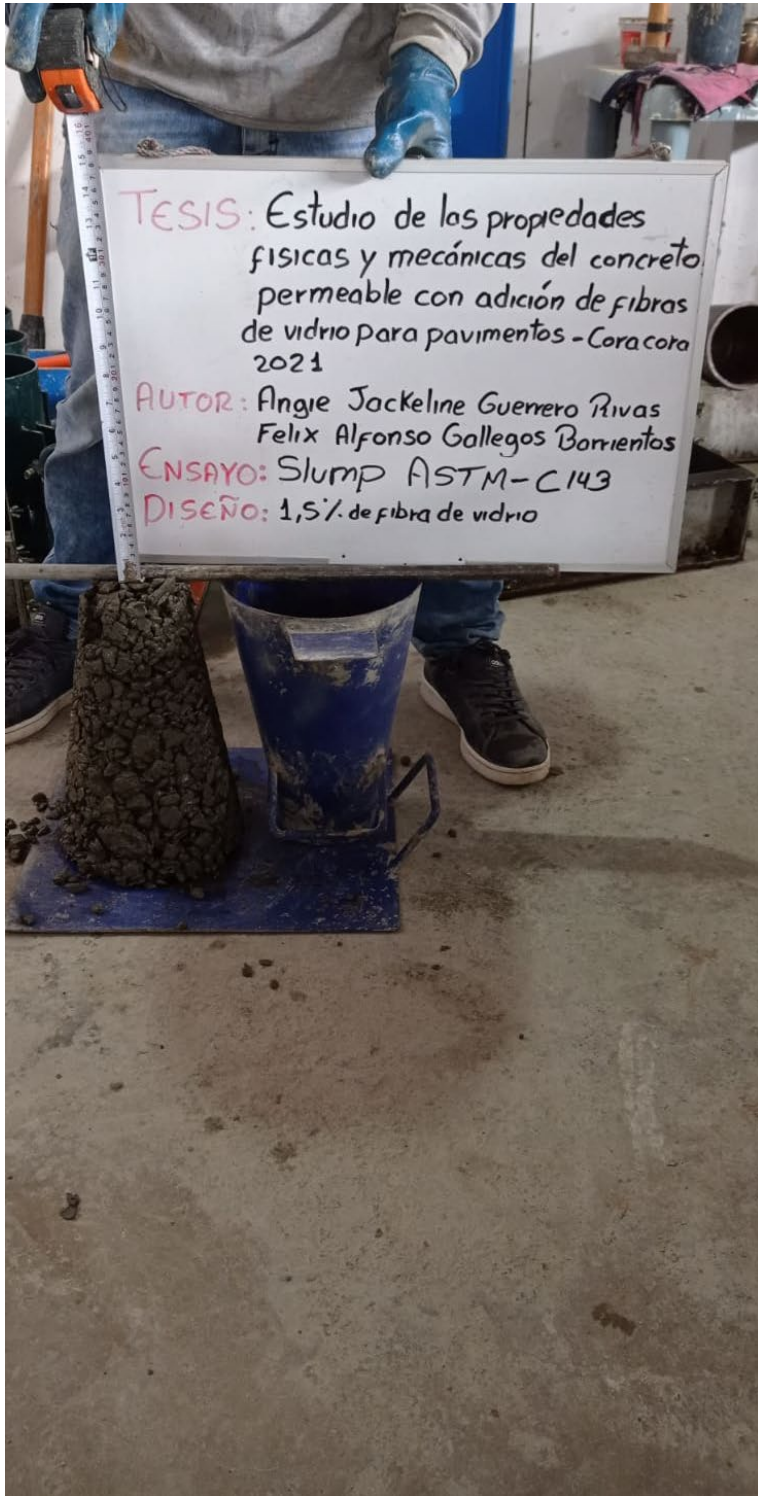 TESIS: Estudio de las propiedades
fisicas y mecánicas del concreto
permeable con adición de fibras
de vidrio para pavimentos - Coracora
2021
AUTOR: Angie Jackeline Guerrero Rivas
Felix Alfonso Gallegos Barrientos
ENSAYO: Slump ASTM-C143
DISEÑO: 1,5% de fibra de vidrio